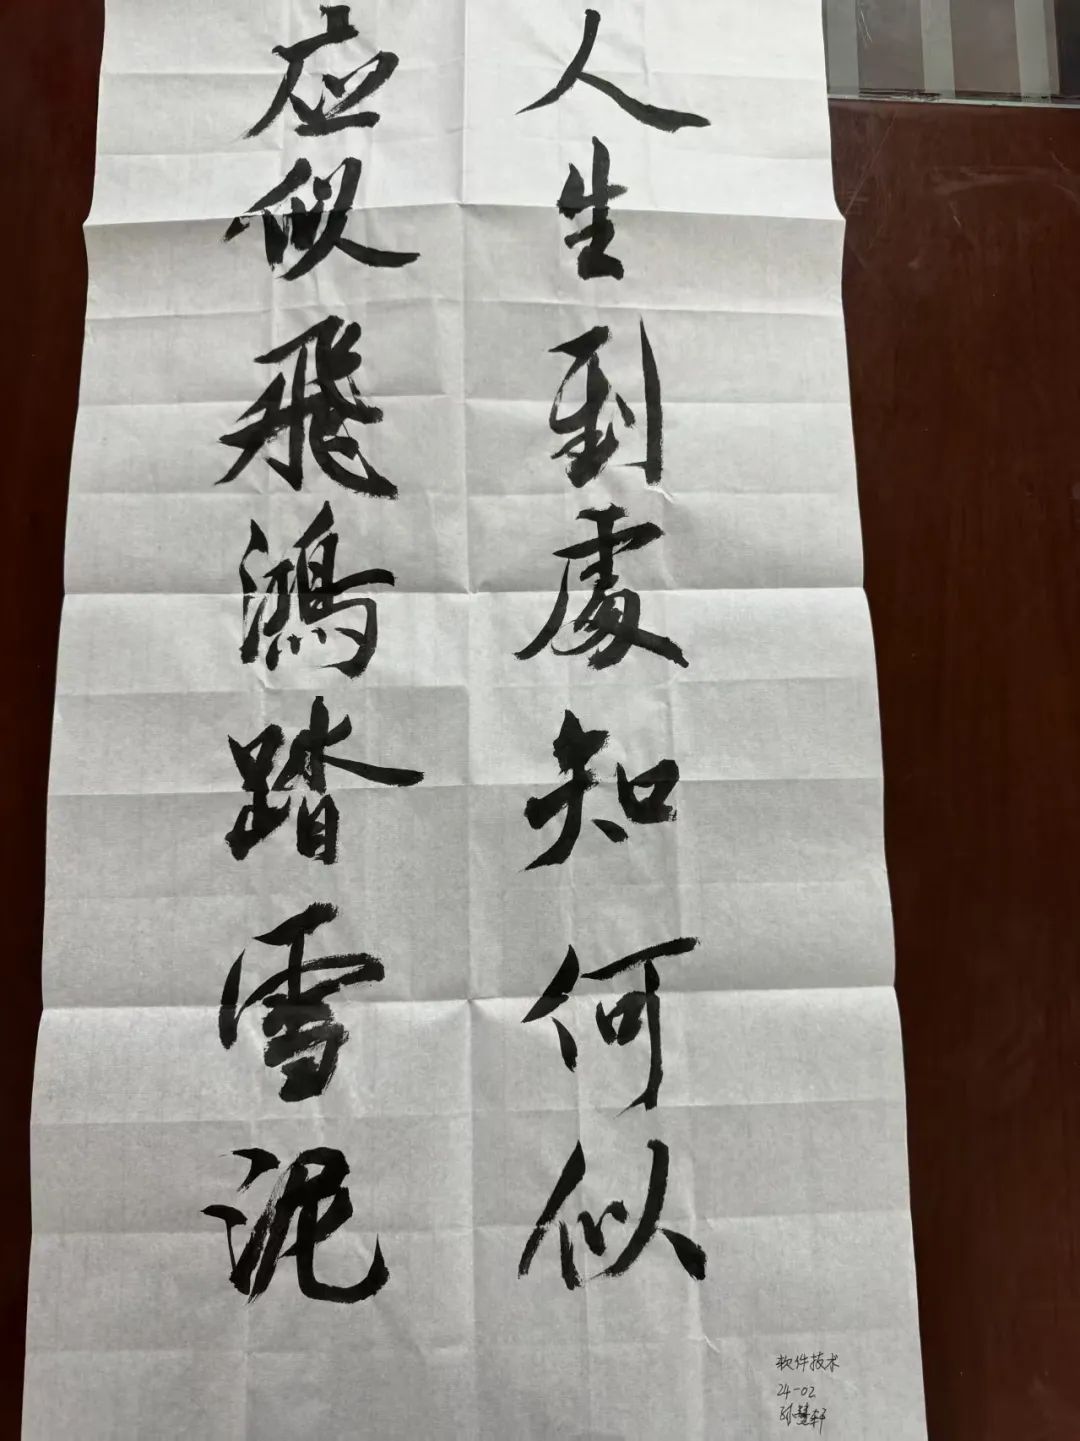 人生到處知何似
应似飛鴻踏雪泥
软件技术
24-02
孙慧轩